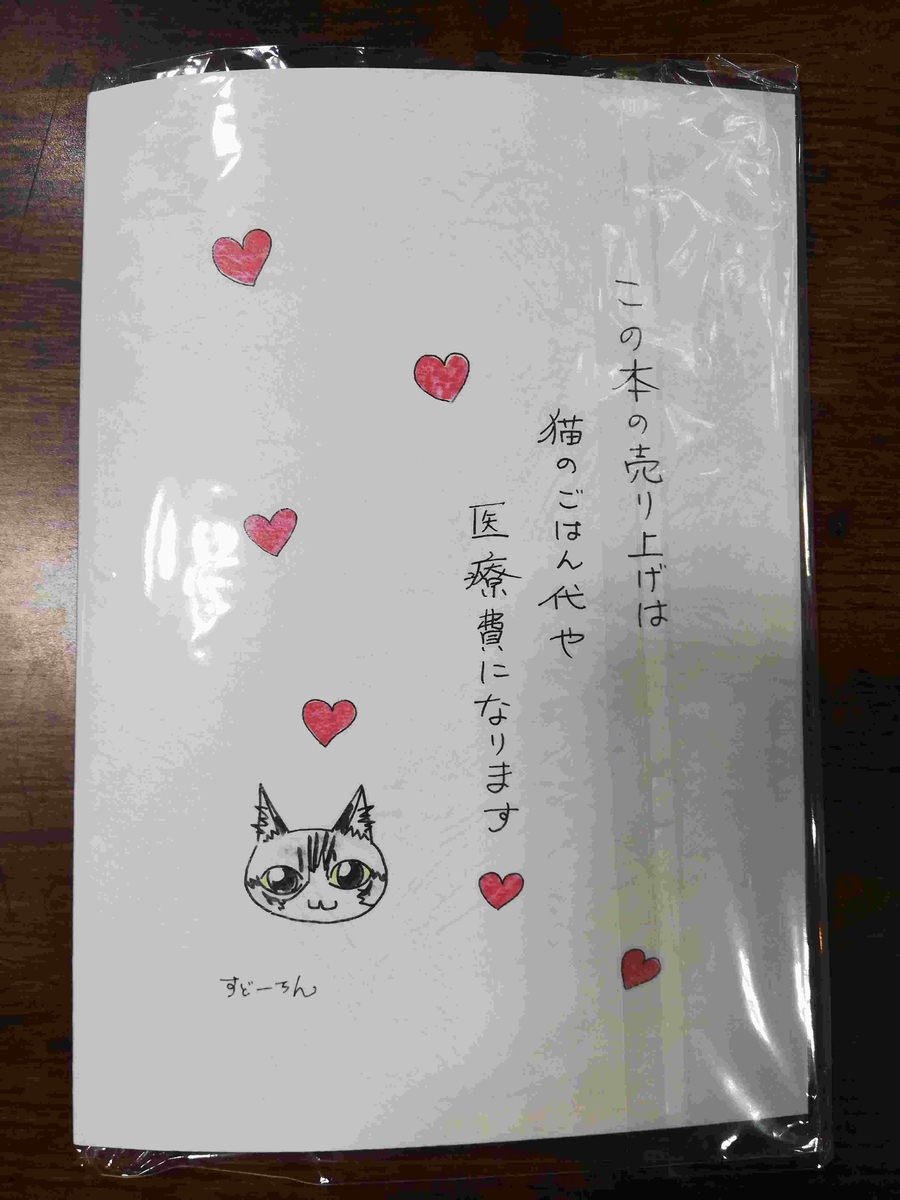 この本の売り上げは
猫のごはん代や
医療費になります
すどーちん